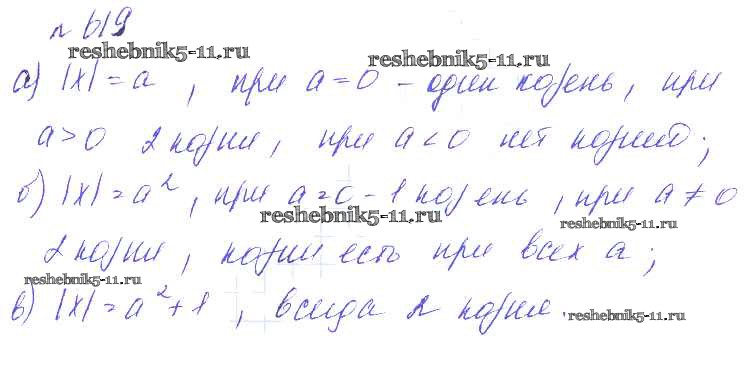 № 619
reshebnik5-11.ru
reshebnik5-11.ru
а) |x| = a , при a = 0 – один корень, при
a > 0 2 корня, при a < 0 нет корней;
б) |x| = a², при a = 0 – 1 корень, при a ≠ 0
reshebnik5-11.ru
reshebnik5-11.ru
2 корня, корни есть при всех a;
reshebnik5-11.ru
в) |x| = a² + 1 , всегда 2 корня.
reshebnik5-11.ru